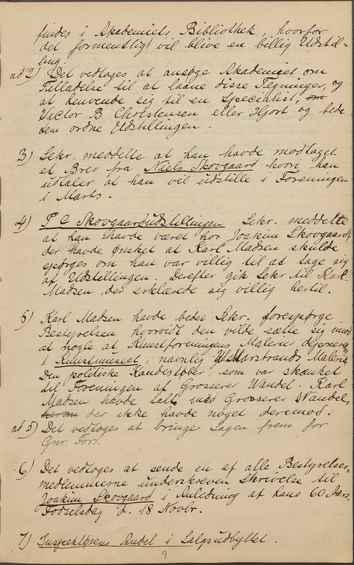 findes i Akademiets Bibliothek, hvorfor
det formentlig vil blive en billig Udstil-
ling.
ad 2) Det vedtoges at ansøge Akademiet om
Tilladelse til at laane disse Tegninger, og
at henvende sig til en Specialist,
Victor B Christensen eller Hjort og bede
dem ordne Udstillingen.
3) Sekr. meddelte at han havde modtaget
et Brev fra Niels Skovgaard hvori han
udtaler at han vil udstille i Foreningen
i Marts.
4) P C Skovgaardudstillingen Sekr. meddelte
at han havde været hos Joakim Skovgaard,
der havde ønsket at Karl Madsen skulde
spørges om han var villig til at tage sig
af Udstillingen. Derefter gik Sekr til Karl
Madsen, der erklærede sig villig hertil.
5) Karl Madsen havde bedt Sekr. forespørge
Bestyrelsen hvorvidt den vilde sætte sig imod
at nogle af Kunstforeningens Malerier
i Kunstmuseet, navnlig Marstrands Maleri
Den politiske Kandestøber, som var skænket
til Foreningen af Grosserer Wandel. Karl
Madsen havde talt med Grosserer Wandel,
der ikke havde noget derimod.
ad 5) Det vedtoges at bringe Sagen frem for
6) Det vedtoges at sende en af alle Bestyrelses-
medlemmerne underskreven Skrivelse til
Joakim Skovgaard i Anledning af hans 60 Aars
Fødselsdag d. 18 Novbr.
7) Inspektørens Andel i Salgsudbyttet.